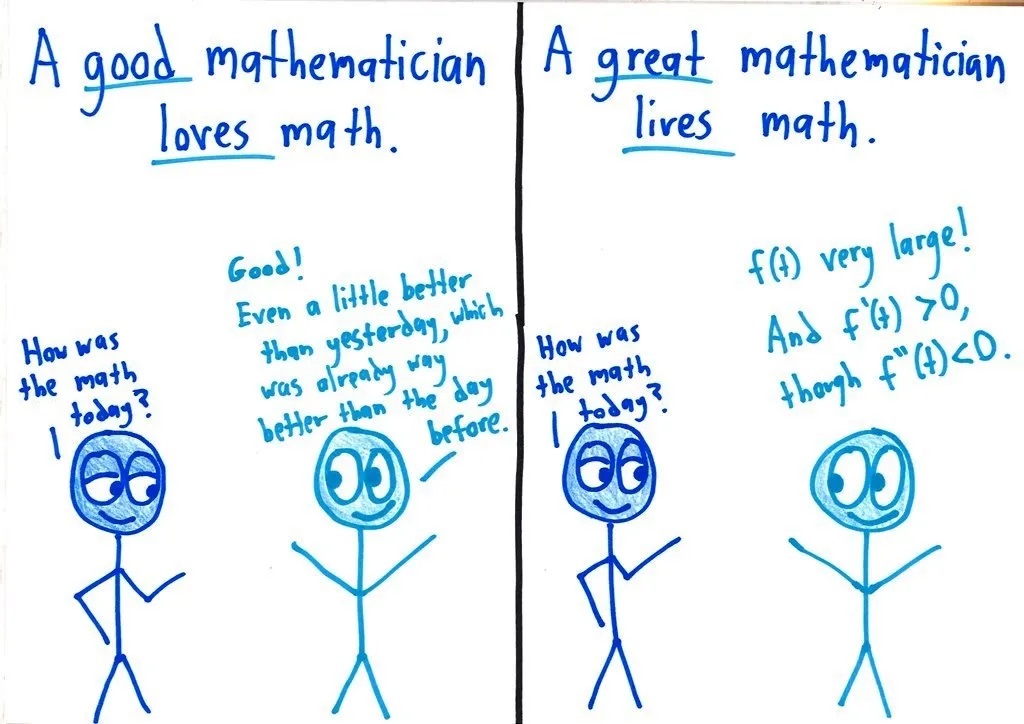 A good mathematician
loves math.
How was
the math
today?
Good!
Even a little better
than yesterday, which
was already way
better than the day
before.
A great mathematician
lives math.
How was
the math
today?
f(t) very large!
And f'(t) >0,
though f"(t)<0.